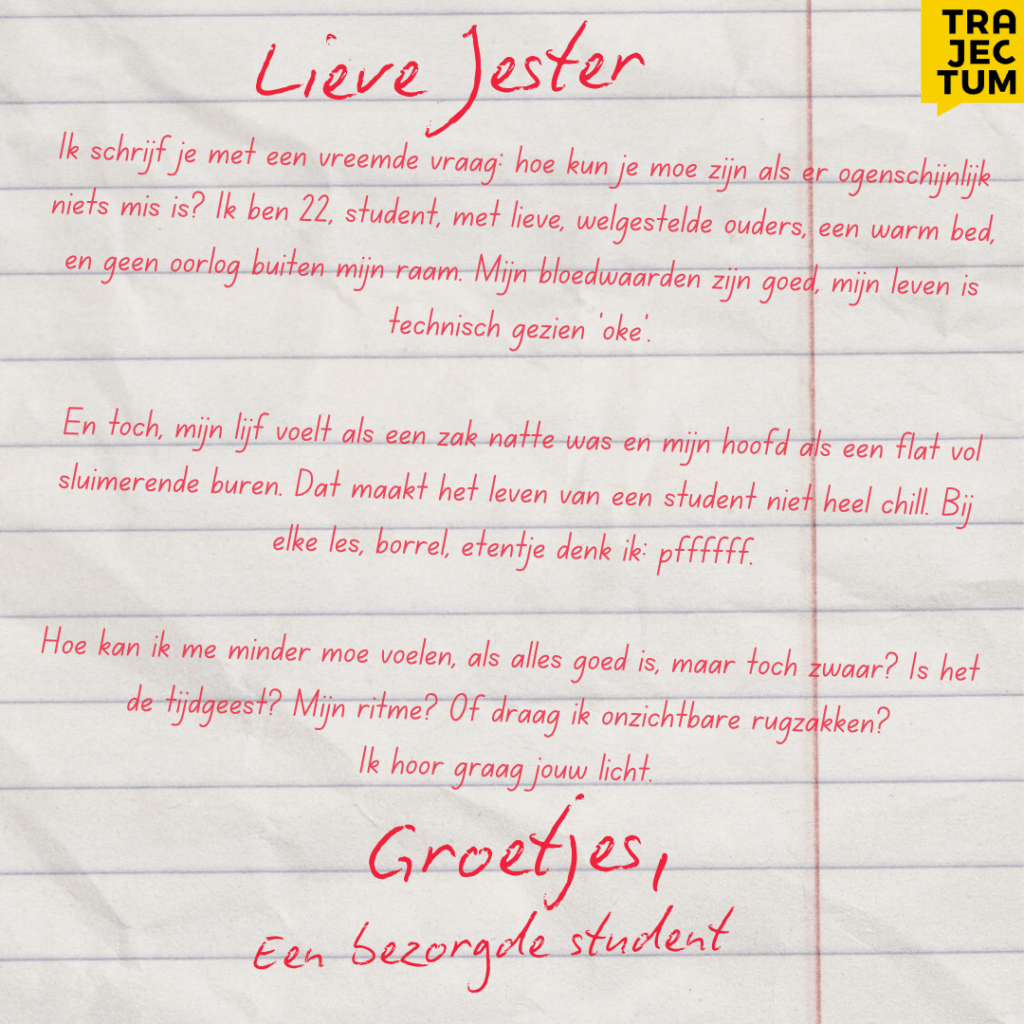 TRA
JEC
TUM
Lieve Jester
Ik schrijf je met een vreemde vraag: hoe kun je moe zijn als er ogenschijnlijk
niets mis is? Ik ben 22, student, met lieve, welgestelde ouders, een warm bed,
en geen oorlog buiten mijn raam. Mijn bloedwaarden zijn goed, mijn leven is
technisch gezien 'oke'.
En toch, mijn lijf voelt als een zak natte was en mijn hoofd als een flat vol
sluimerende buren. Dat maakt het leven van een student niet heel chill. Bij
elke les, borrel, etentje denk ik: pffffff.
Hoe kan ik me minder moe voelen, als alles goed is, maar toch zwaar? Is het
de tijdgeest? Mijn ritme? Of draag ik onzichtbare rugzakken?
Ik hoor graag jouw licht.
Groetjes,
Een bezorgde student